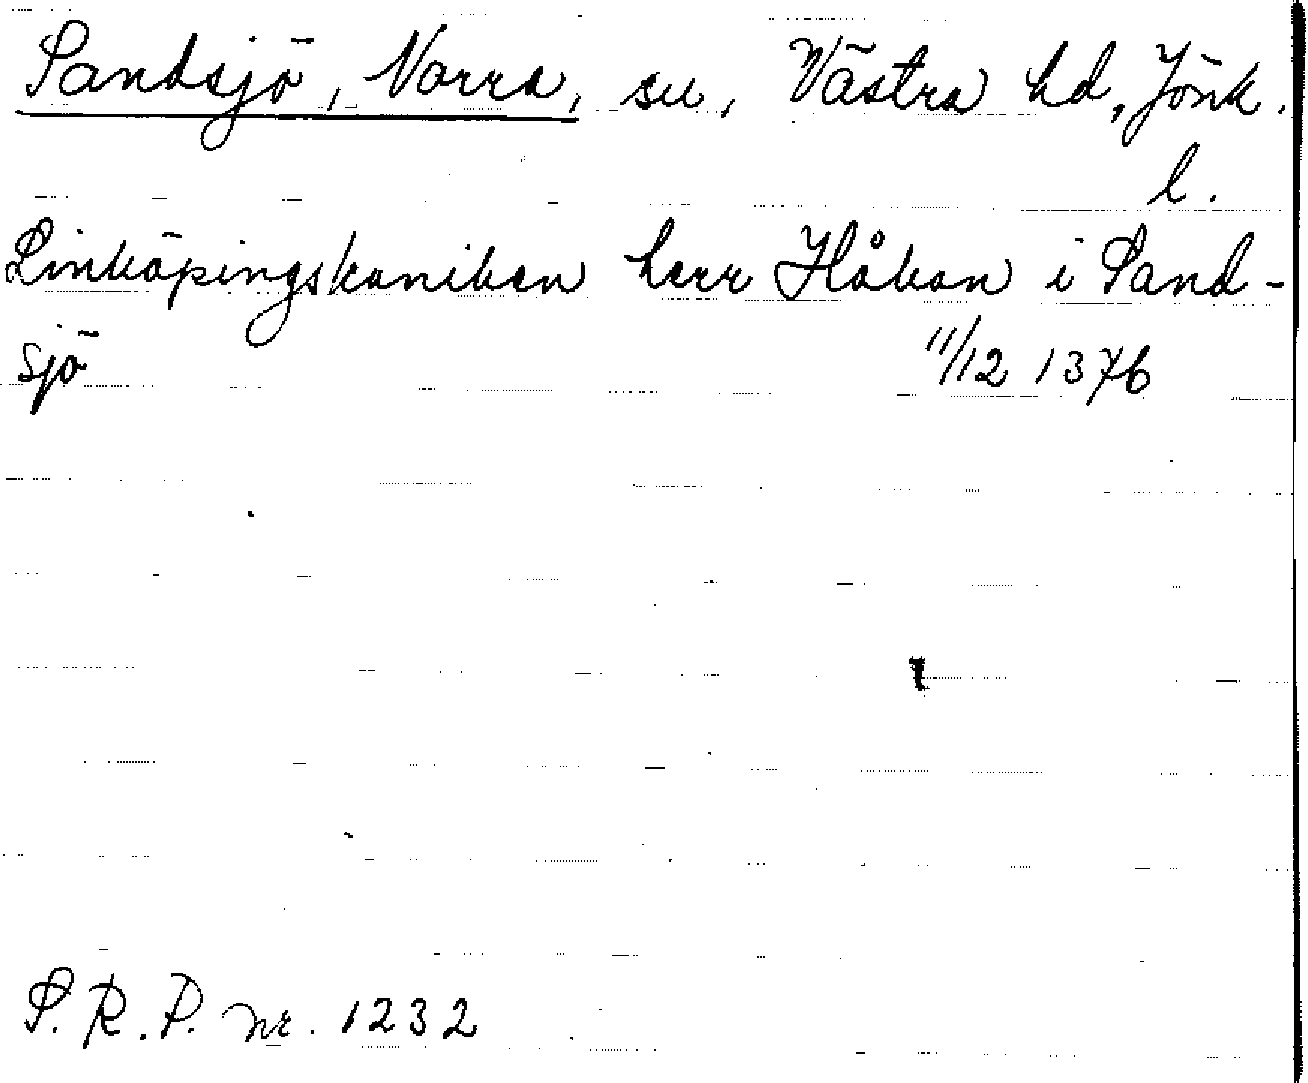 Sandsjö, Norra, sn, Västra hd, Jönk.
l.
Linköpingskaniken herr Håkan i Sand-
sjö 11/12 1376
S.R.P. nr. 1232